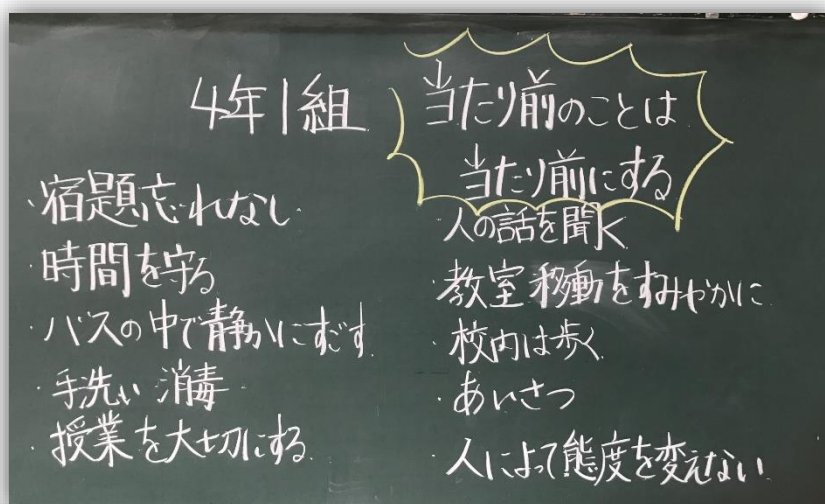 4年1組
当たり前のことは
当たり前にする
・宿題忘れなし
・時間を守る
・バスの中で静かにすごす
・手洗い 消毒
・授業を大切にする
・人の話を聞く
・教室移動をすみやかに
・校内は歩く
・あいさつ
・人によって態度を変えない